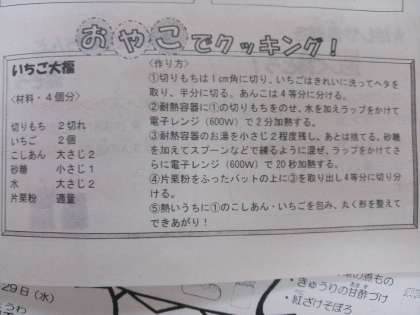 おやこでクッキング！
いちご大福
〈材料・４個分〉
切りもち　２切れ
いちご　２個
こしあん　大さじ２
砂糖　小さじ１
水　大さじ２
片栗粉　適量
〈作り方〉
①切りもちは１cm角に切り、いちごはきれいに洗ってヘタを
取り、半分に切る。あんこは４等分に分ける。
②耐熱容器に①の切りもちをのせ、水を加えラップをかけて
電子レンジ（600W）で２分加熱する。
③耐熱容器のお湯を小さじ２程度残し、あとは捨てる。砂糖
を加えてスプーンなどで練るように混ぜ、ラップをかけてさ
らに電子レンジ（600W）で20秒加熱する。
④片栗粉をふったバットの上に③を取り出し４等分に切り分
ける。
⑤熱いうちに①のこしあん・いちごを包み、丸く形を整えて
できあがり！
29日（水）
の煮もの
・きゅうりの甘酢づけ
・紅ざけそぼろ